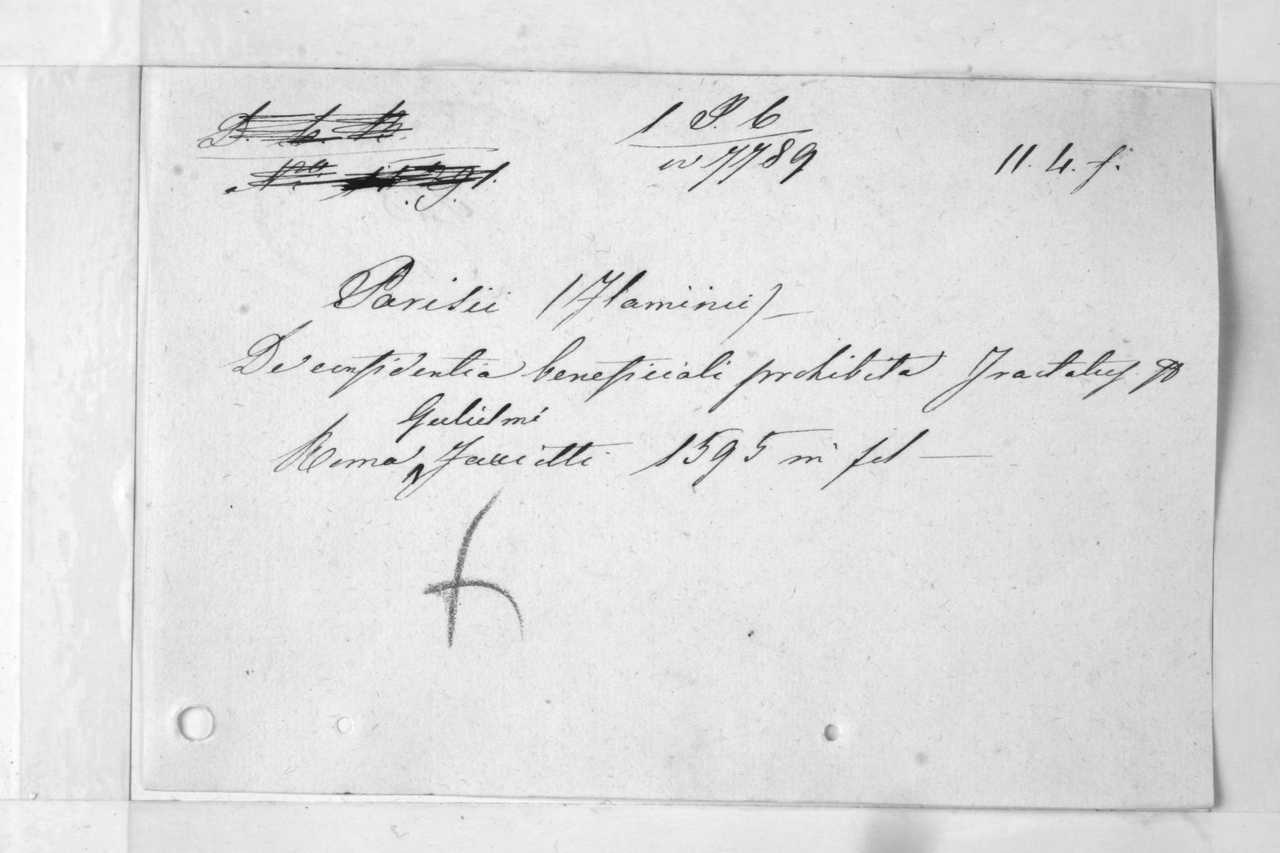 1 P. 6
n 7789
11. 4. f.
Parisii (Flaminii)
De confidentia beneficiali prohibita Tractatus
Gulielmi
Roma, Facciotti 1595 in fol